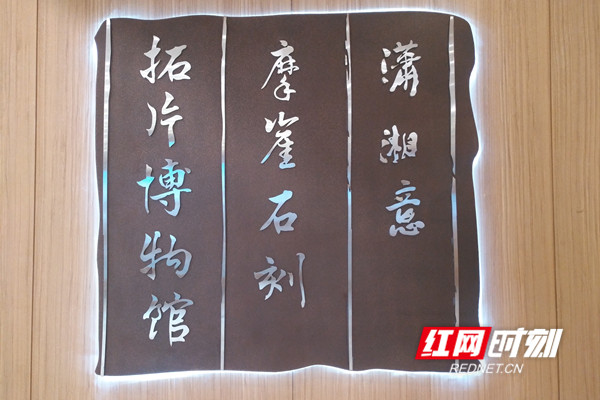 潇湘意
摩崖石刻
拓片博物馆
红网时刻
REDNET.CN